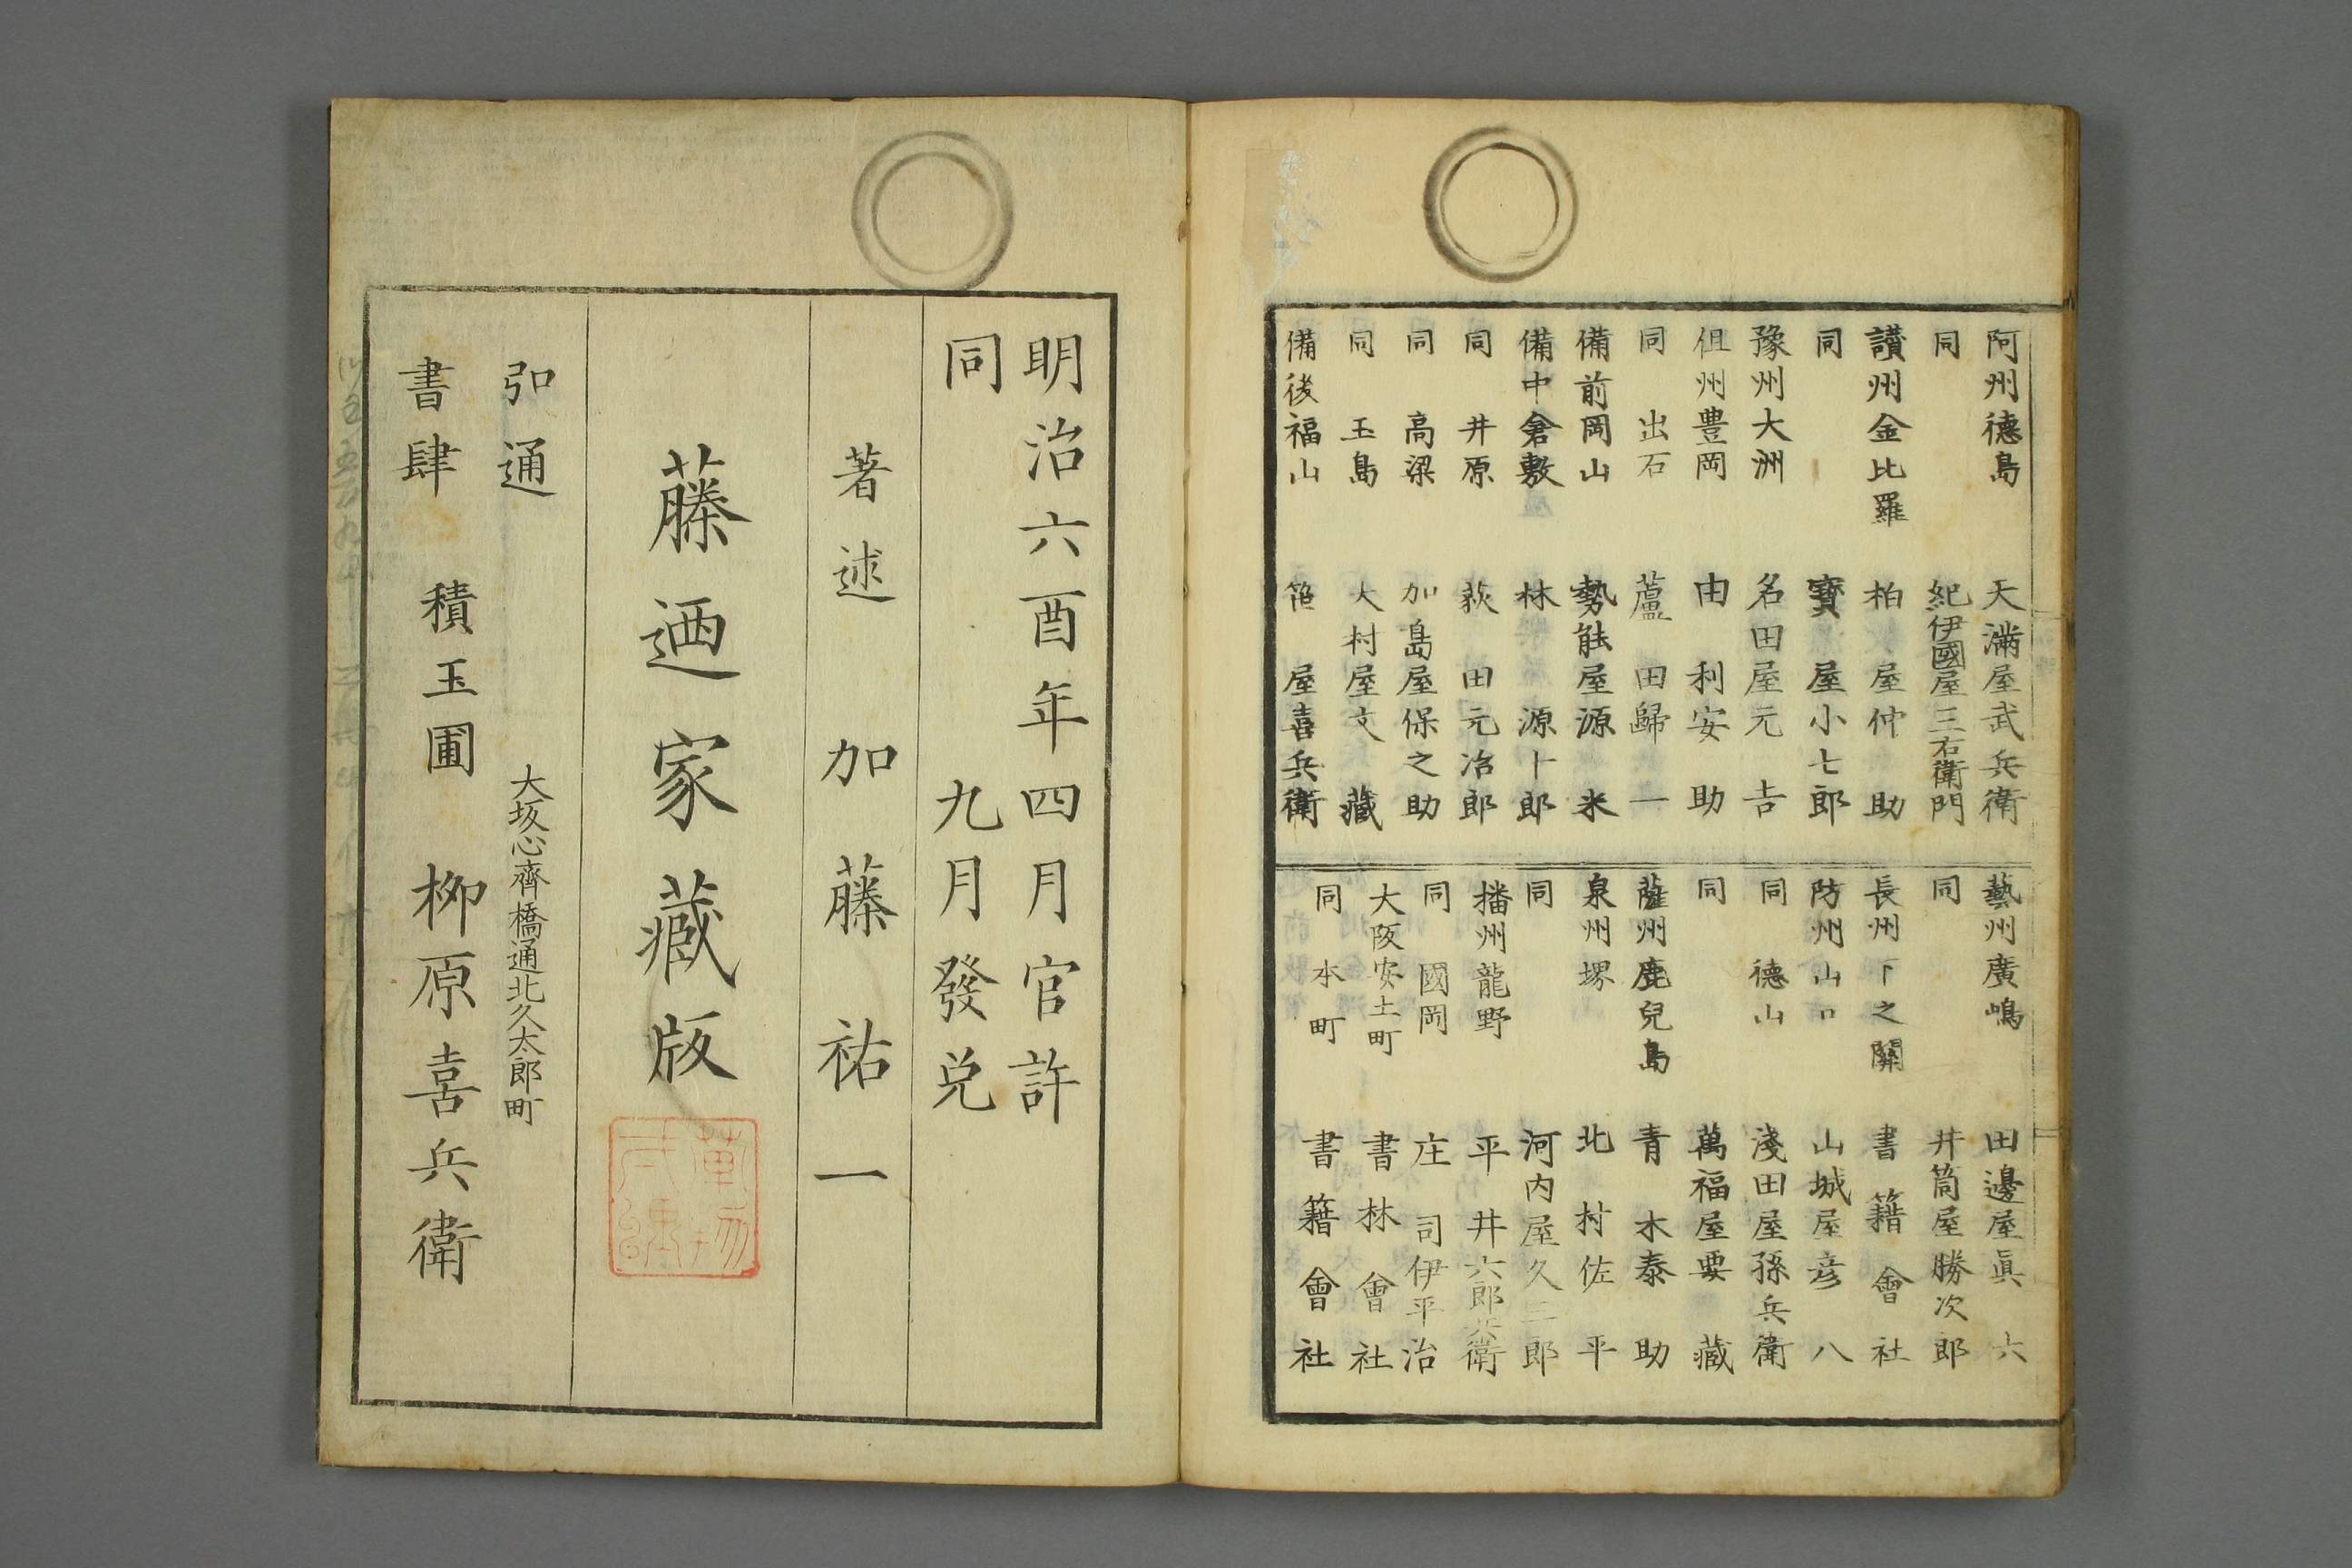 阿州德島 天滿屋武兵衛
同 紀伊國屋三右衛門
讃州金比羅 柏屋仲助
同 寶屋小七郎
豫州大洲 名田屋元吉
但州豊岡 由利安助
同 出石 蘆田歸一
備前岡山 勢能屋源米
備中倉敷 林源十郎
同 井原 荻田元治郎
同 高梁 加島屋保之助
同 玉島 大村屋文藏
備後福山 笹屋喜兵衛
藝州廣嶋 田邊屋眞六
同 井筒屋勝次郎
長州下之關 書籍會社
防州山口 山城屋彦八
同 德山 淺田屋孫兵衛
同 萬福屋要藏
薩州鹿兒島 青木泰助
泉州堺 北村佐平
同 河内屋久三郎
播州龍野 平井六郎兵衛
同 國岡 庄司伊平治
大阪安土町 書林會社
同 本町 書籍會社
明治六酉年四月官許
同 九月發兌
著述 加藤祐一
藤廼家藏版
弘通
書肆
大坂心齊橋通北久太郎町
積玉圃 柳原喜兵衛